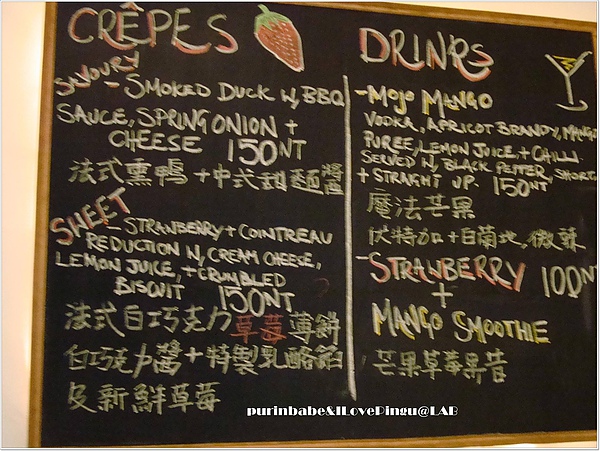 CRÊPES
SAVOURY
- SMOKED DUCK W, BBQ
SAUCE, SPRING ONION +
CHEESE 150NT
法式熏鴨 + 中式甜麵醬
SWEET
- STRANBERRY + COINTREAU
REDUCTION W, CREAM CHEESE,
LEMON JUICE, + CRUMBLED
BISCUIT 150NT
法式白巧克力草莓薄餅
白巧克力醬 + 特製乳酪餡
及新鮮草莓
DRINKS
- MOJO MANGO
VODKA, APRICOT BRANDY, MANGO
PUREE, LEMON JUICE, + CHILLI.
SERVED W, BLACK PEPPER, SHORT,
+ STRAIGHT UP. 150NT
魔法芒果
伏特加 + 白蘭地, 微辣
- STRANBERRY 100NT
+
MANGO SMOOTHIE
芒果草莓果昔
purinbabe&ILovePingu@LAB